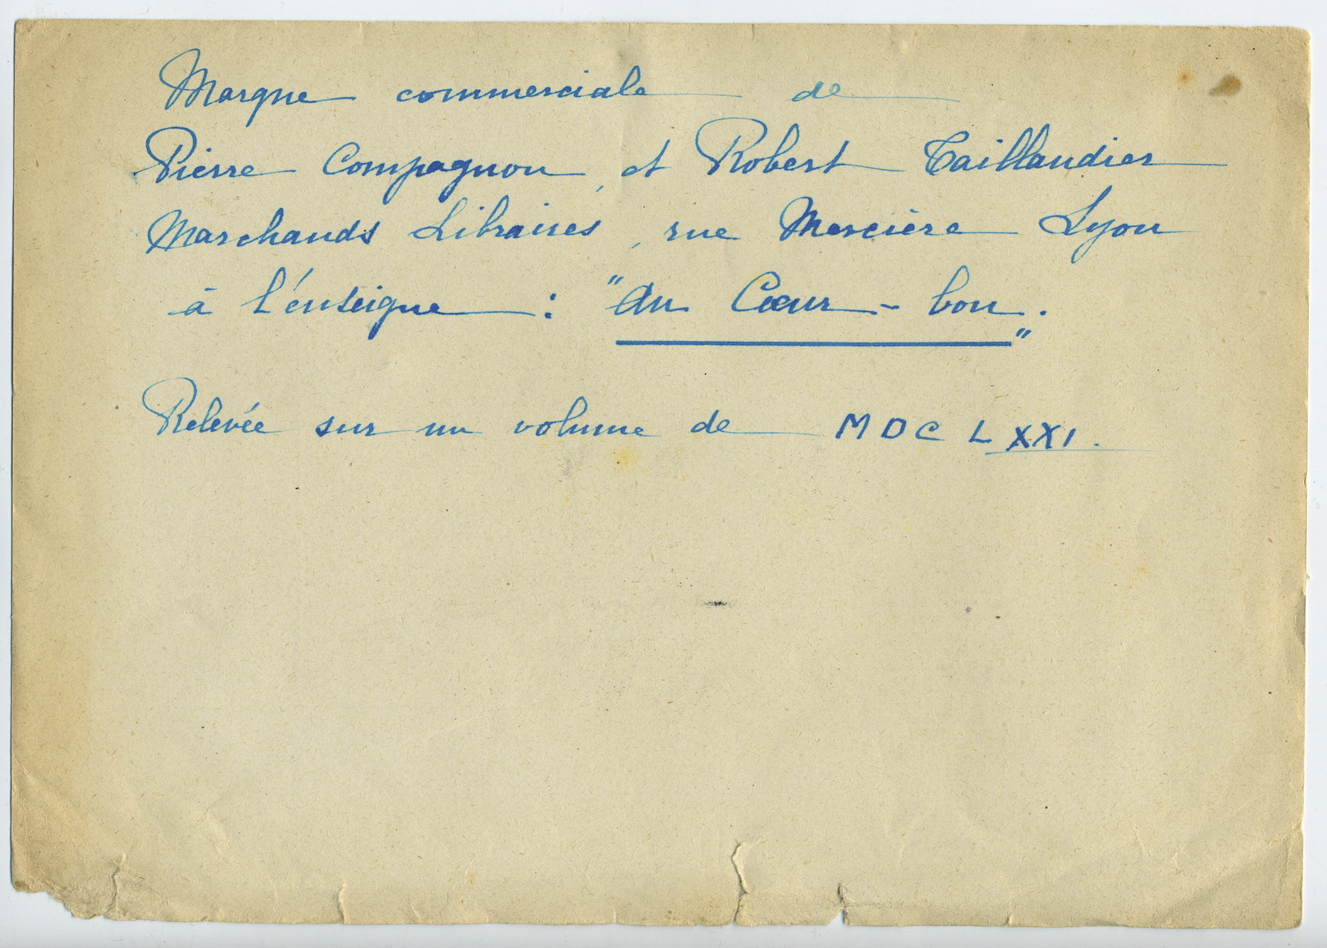 Marque commerciale de
Pierre Compagnon et Robert Taillandier
Marchands Libraires, rue Mercière Lyon
à l'enseigne : "Au Cœur-bon."
Relevée sur un volume de MDCLXXI.